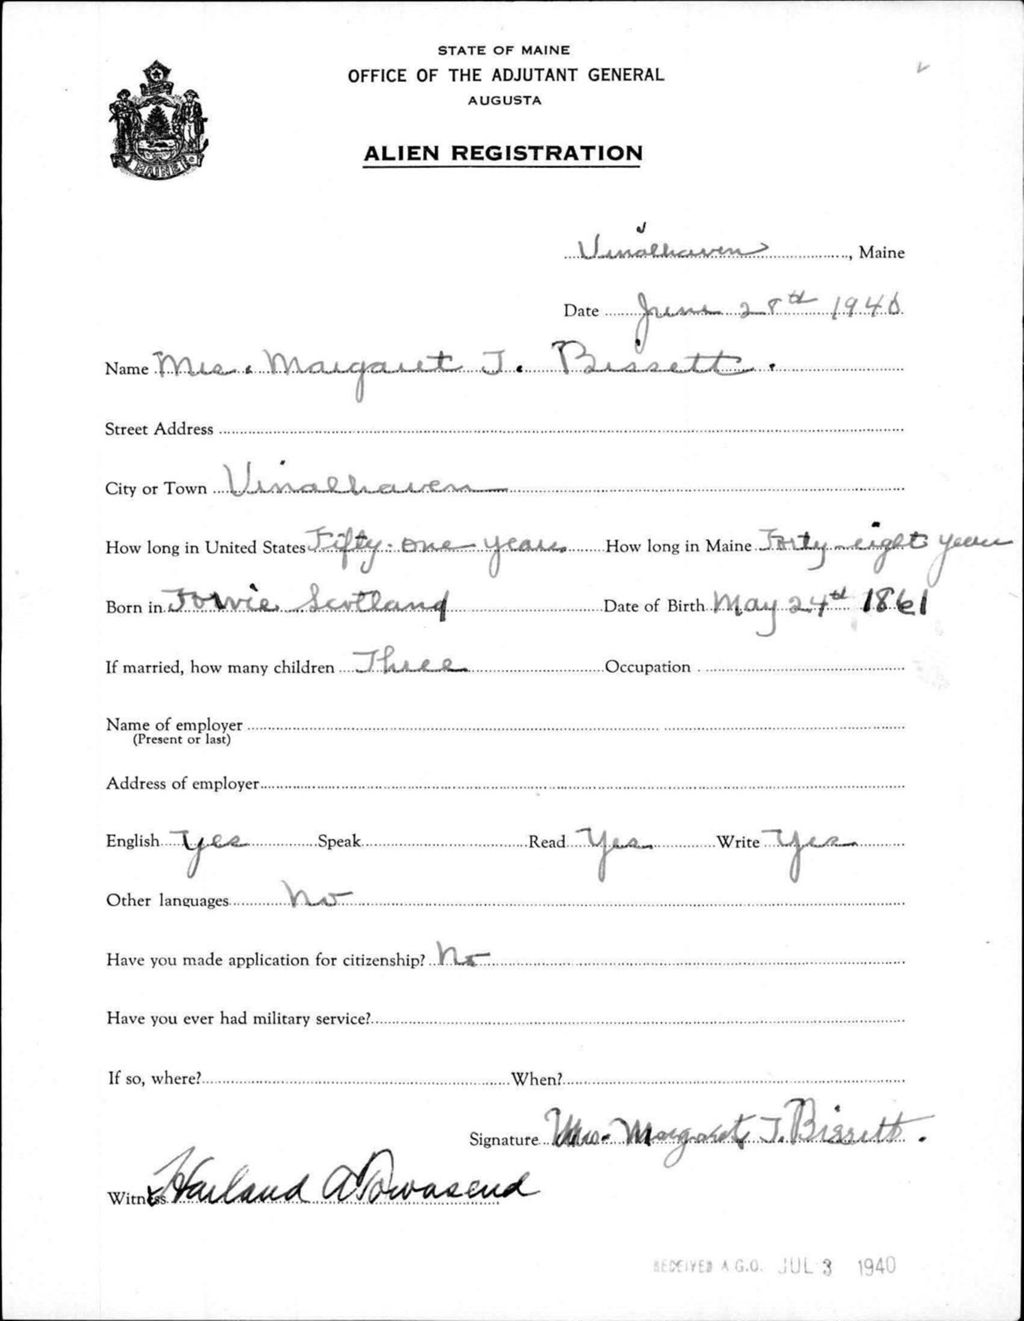 STATE OF MAINE
OFFICE OF THE ADJUTANT GENERAL
AUGUSTA
ALIEN REGISTRATION
MAINE
Vinalhaven, Maine
Date June 28th 1940
Name Mrs. Margaret J. Bissett.
Street Address
City or Town Vinalhaven
How long in United States Fifty-one years How long in Maine Forty-eight years
Born in Towie Scotland Date of Birth May 24th 1861
If married, how many children Three Occupation
Name of employer
(Present or last)
Address of employer
English Yes Speak Read Yes Write Yes
Other languages No
Have you made application for citizenship? No
Have you ever had military service?
If so, where? When?
Signature Mrs. Margaret J. Bissett.
Witness Harland A Townsend
RECEIVED A.G.O. JUL 3 1940